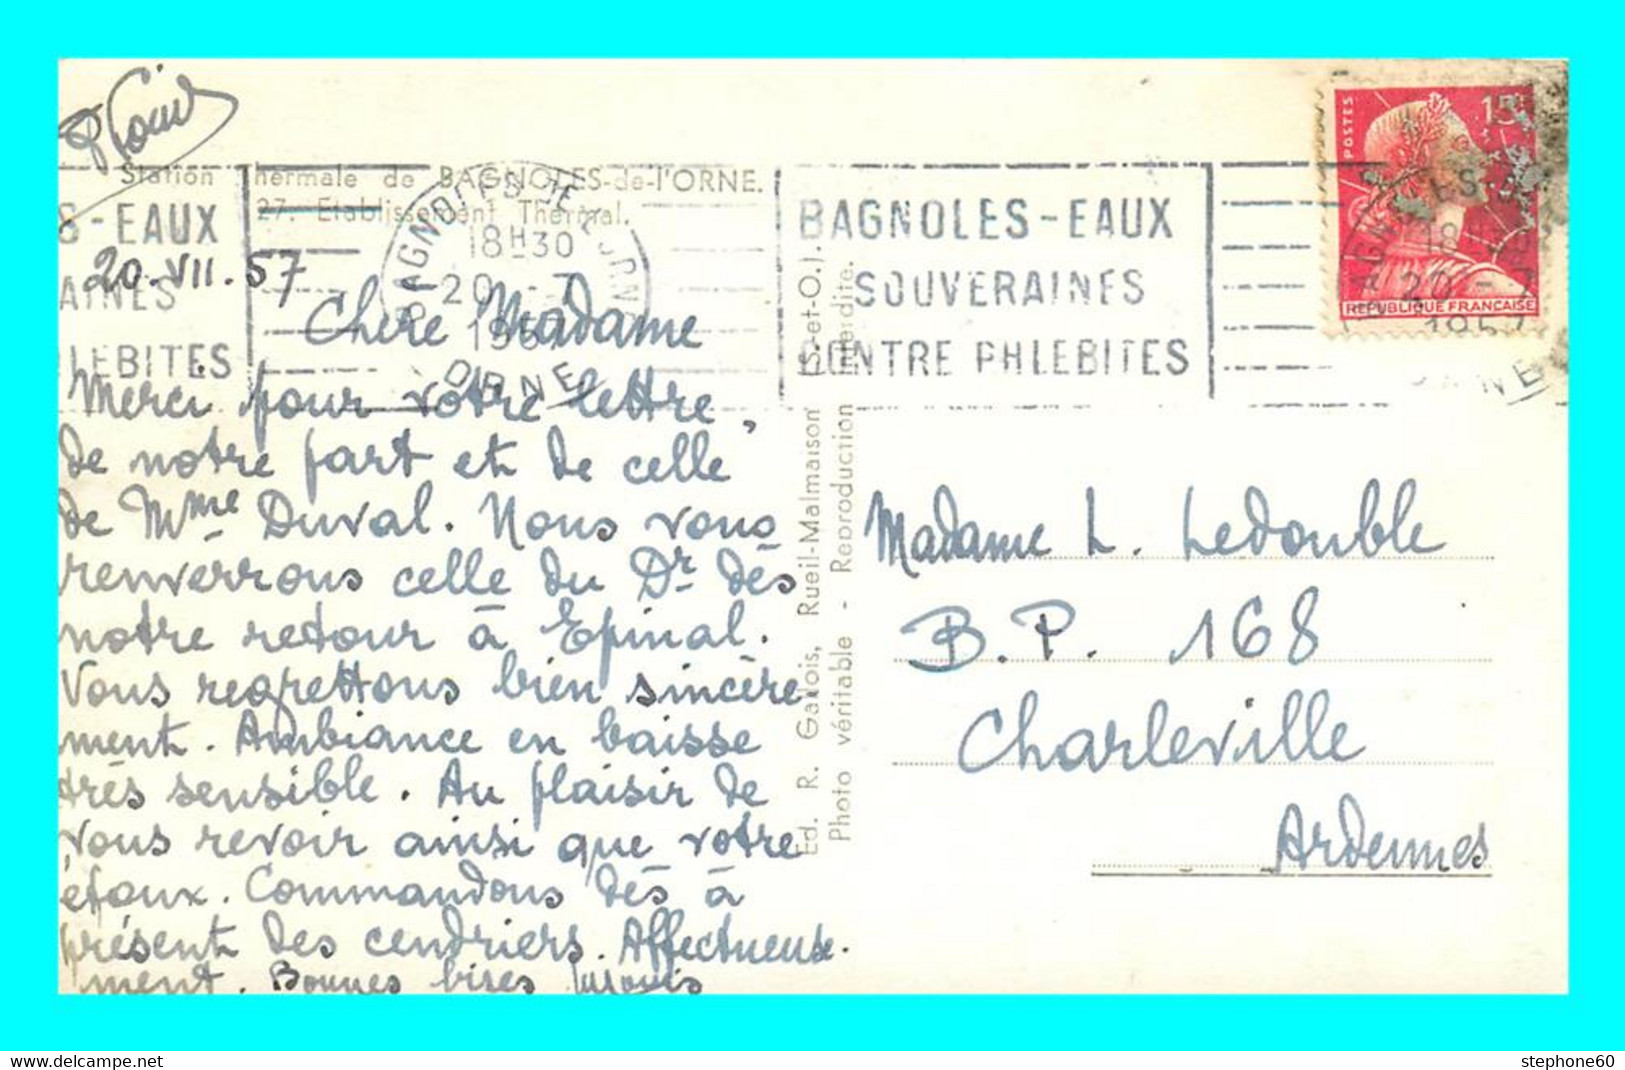 Station Thermale de BAGNOLES-de-l'ORNE.
27. Etablissement Thermal.
S-EAUX
AINES
LEBITES
BAGNOLES DE L'ORNE
18H30
20 - 7
1957
ORNE
BAGNOLES-EAUX
SOUVERAINES
CONTRE PHLEBITES
POSTES
15
REPUBLIQUE FRANCAISE
18
20 -
1957
20. VII. 57
Chère Madame
Merci pour votre lettre,
de notre part et de celle
de Mme Duval. Nous vous
renverrons celle du Dr dès
notre retour à Epinal.
Vous regrettons bien sincère
ment. Ambiance en baisse
très sensible. Au plaisir de
vous revoir ainsi que votre
époux. Commandons dès à
présent des cendriers. Affectueuse.
ment. Bonnes bises
Ed. R. Gallois, Rueil-Malmaison (S.-et-O.).
Photo véritable - Reproduction interdite.
Madame L. Ledouble
B.P. 168
Charleville
Ardennes
stephone60